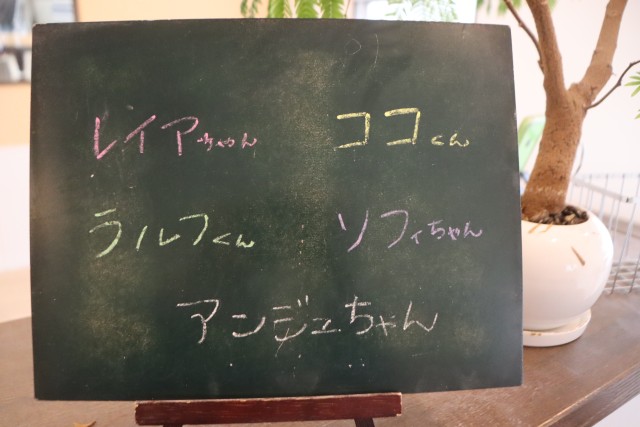 レイアちゃん ココくん
ラルフくん ソフィちゃん
アンジュちゃん